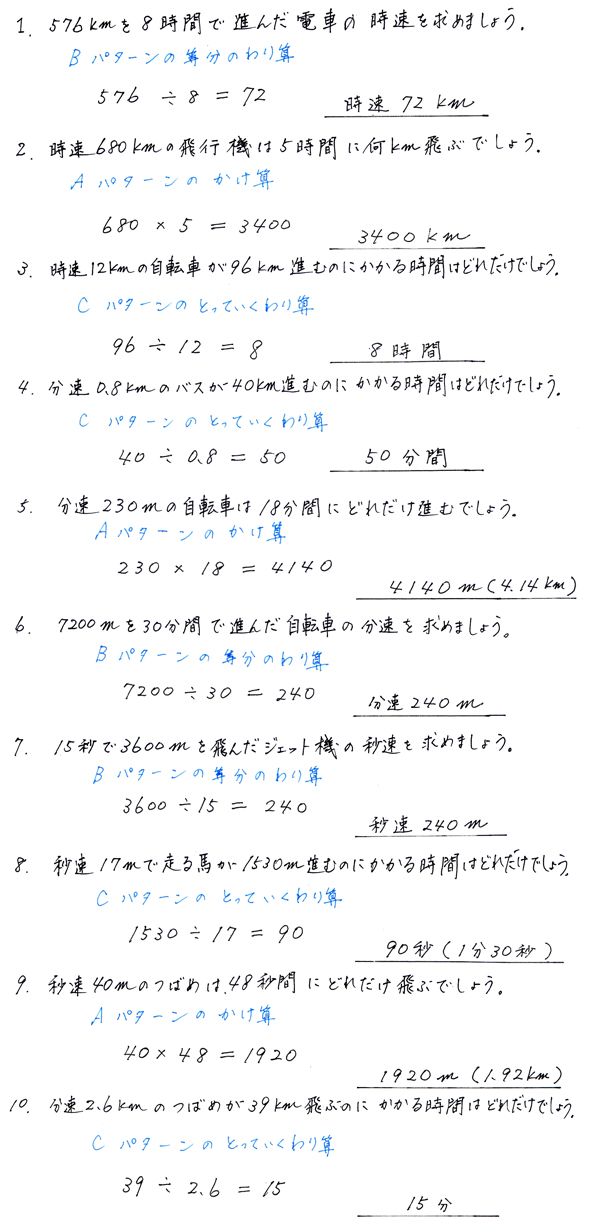 1. 576kmを8時間で進んだ電車の時速を求めましょう。
Bパターンの等分のわり算
576 ÷ 8 = 72 時速 72 km
2. 時速680kmの飛行機は5時間に何km飛ぶでしょう。
Aパターンのかけ算
680 × 5 = 3400 3400 km
3. 時速12kmの自転車が96km進むのにかかる時間はどれだけでしょう。
Cパターンのとっていくわり算
96 ÷ 12 = 8 8時間
4. 分速0.8kmのバスが40km進むのにかかる時間はどれだけでしょう。
Cパターンのとっていくわり算
40 ÷ 0.8 = 50 50分間
5. 分速230mの自転車は18分間にどれだけ進むでしょう。
Aパターンのかけ算
230 × 18 = 4140
4140m(4.14km)
6. 7200mを30分間で進んだ自転車の分速を求めましょう。
Bパターンの等分のわり算
7200 ÷ 30 = 240 分速240m
7. 15秒で3600mを飛んだジェット機の秒速を求めましょう。
Bパターンの等分のわり算
3600 ÷ 15 = 240
秒速240m
8. 秒速17mで走る馬が1530m進むのにかかる時間はどれだけでしょう。
Cパターンのとっていくわり算
1530 ÷ 17 = 90
90秒(1分30秒)
9. 秒速40mのつばめは、48秒間にどれだけ飛ぶでしょう。
Aパターンのかけ算
40 × 48 = 1920
1920m(1.92km)
10. 分速2.6kmのつばめが39km飛ぶのにかかる時間はどれだけでしょう。
Cパターンのとっていくわり算
39 ÷ 2.6 = 15
15分